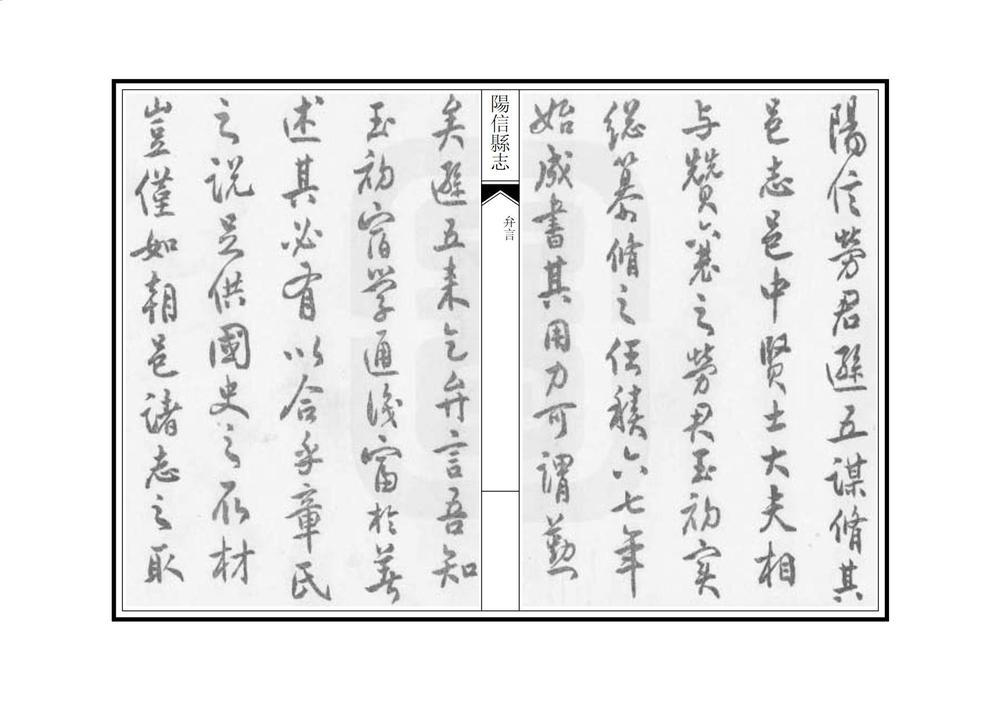 陽信勞君遜五謀脩其
邑志邑中賢士大夫相
与贊襄之勞君玉初实
總纂脩之任積六七年
始成書其用力可謂勤
陽信縣志
弁言
矣遜五来乞弁言吾知
玉初宿學通識富於著
述其必有以合乎章氏
之说足供國史之取材
豈僅如朝邑諸志之取